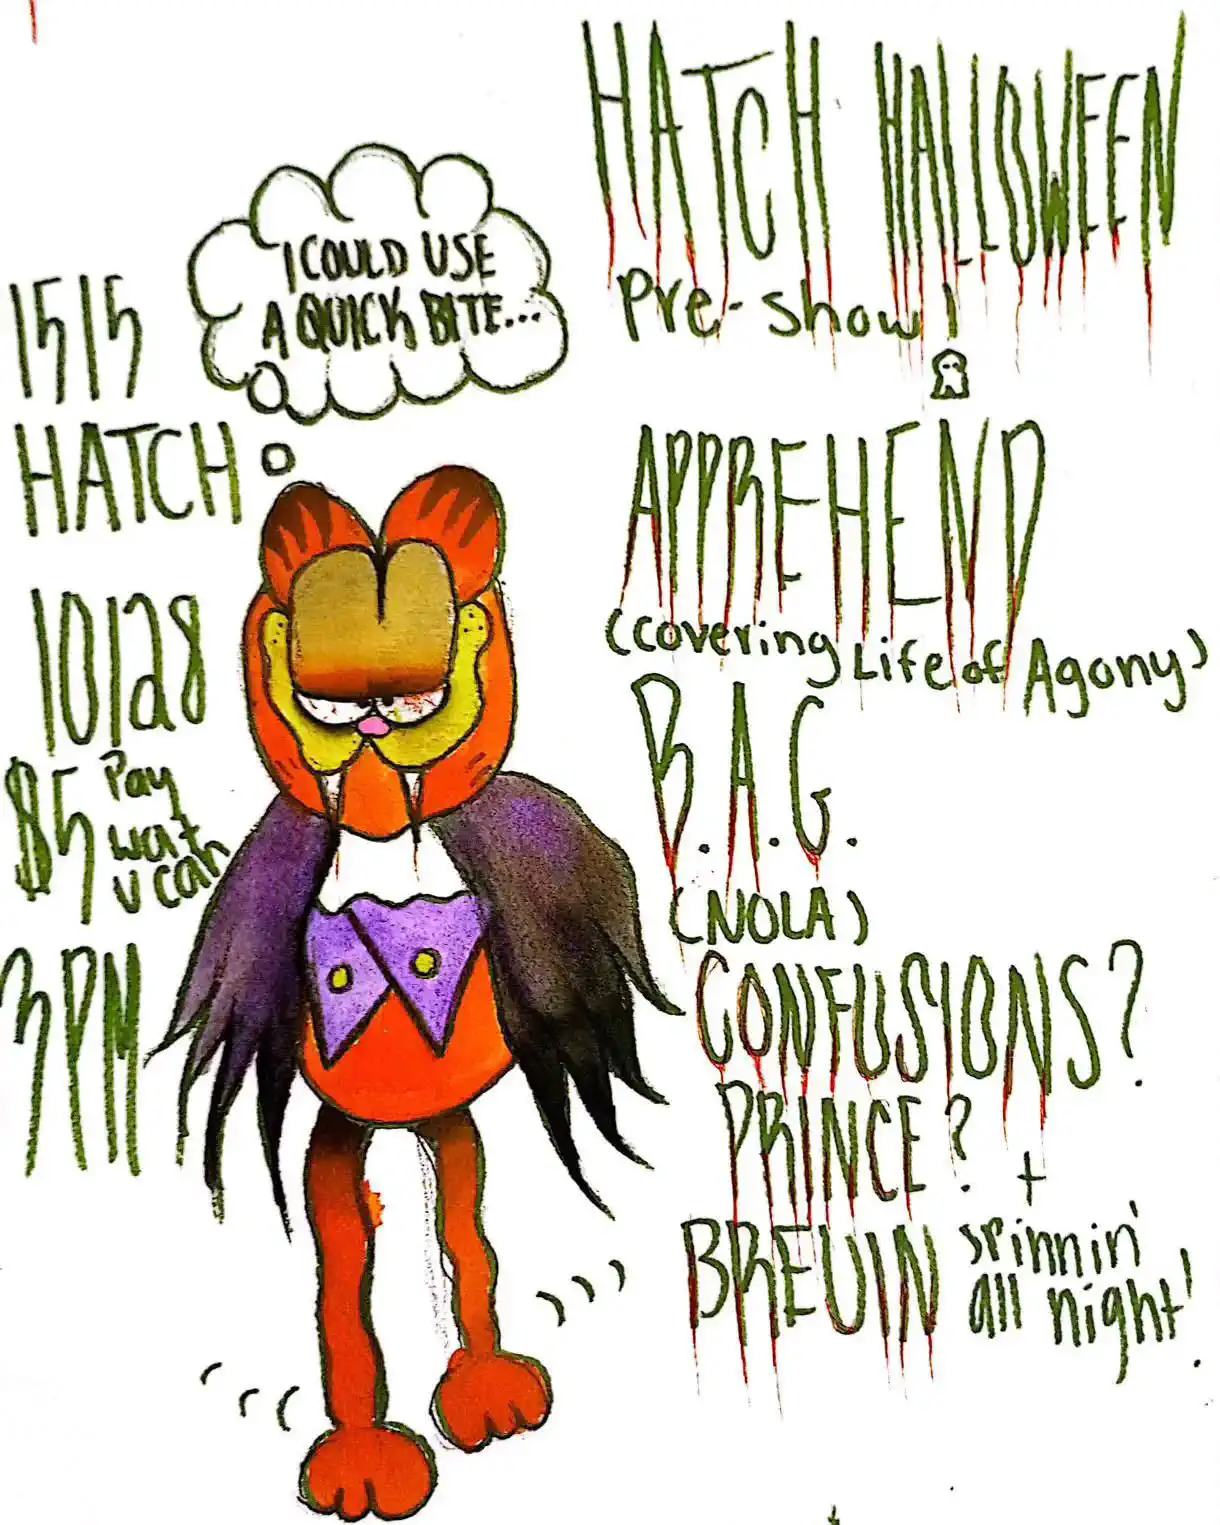 HATCH HALLOWEEN
Pre-show!
I COULD USE
A QUICK BITE...
1515
HATCH
10/28
$5 Pay
wat
u can
3PM
APPREHEND
(covering Life of Agony)
B.A.G.
(NOLA)
CONFUSIONS?
PRINCE? +
BREUIN spinnin'
all night!